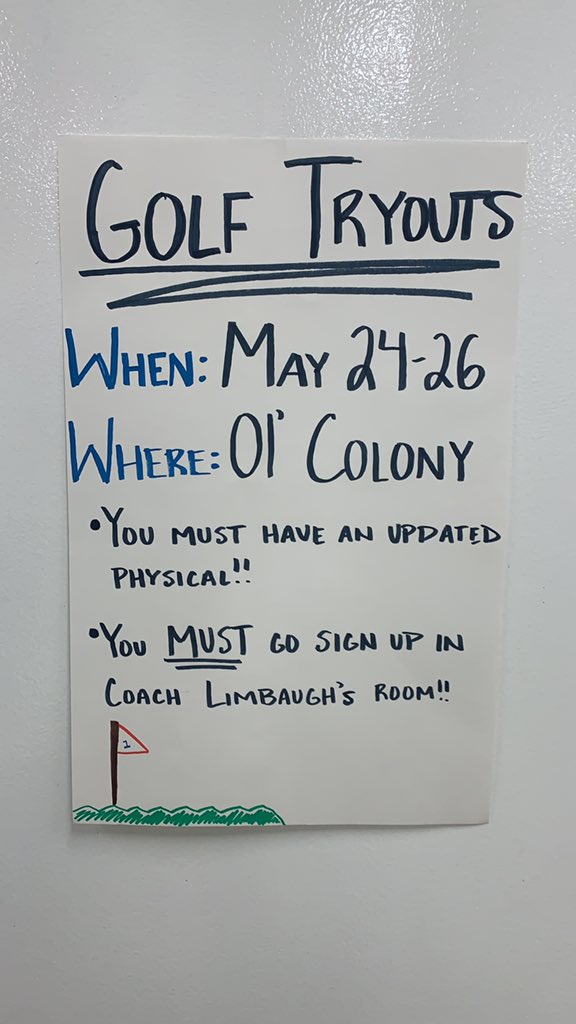 GOLF TRYOUTS
WHEN: MAY 24-26
WHERE: Ol' COLONY
•YOU MUST HAVE AN UPDATED
PHYSICAL!!
•YOU MUST GO SIGN UP IN
COACH LIMBAUGH'S ROOM!!
1